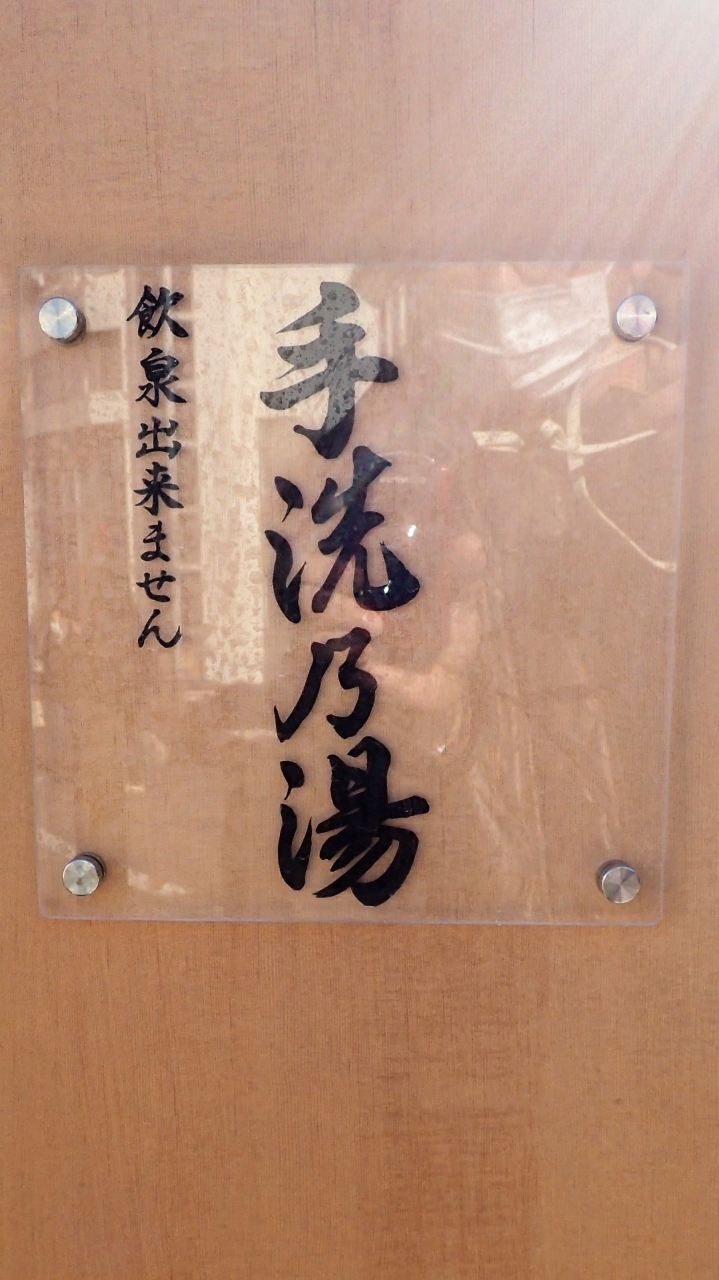 手洗乃湯
飲泉出来ません